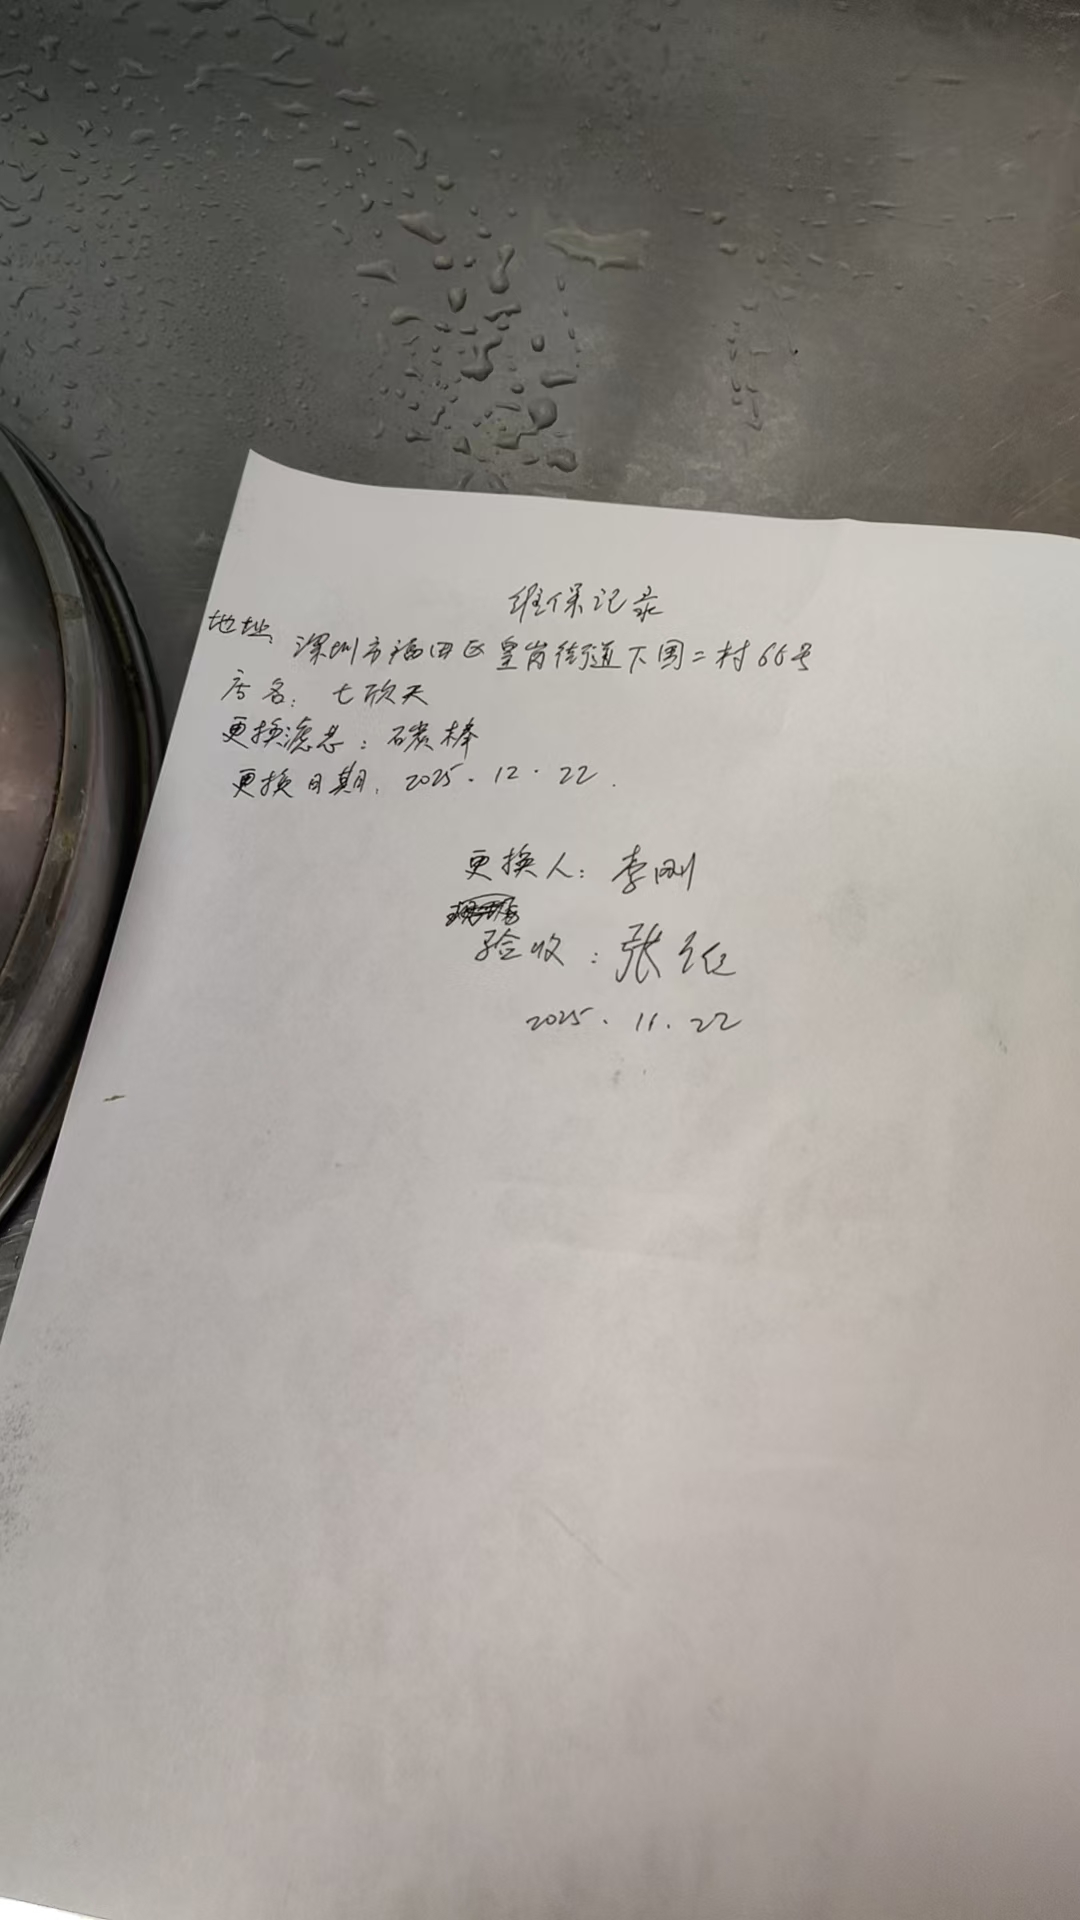 维保记录
地址 深圳市福田区皇岗街道下围二村66号
店名: 七欣天
更换滤芯: 碳棒
更换日期. 2025.12.22.
更换人: 李刚
验收: 张
2025.11.22